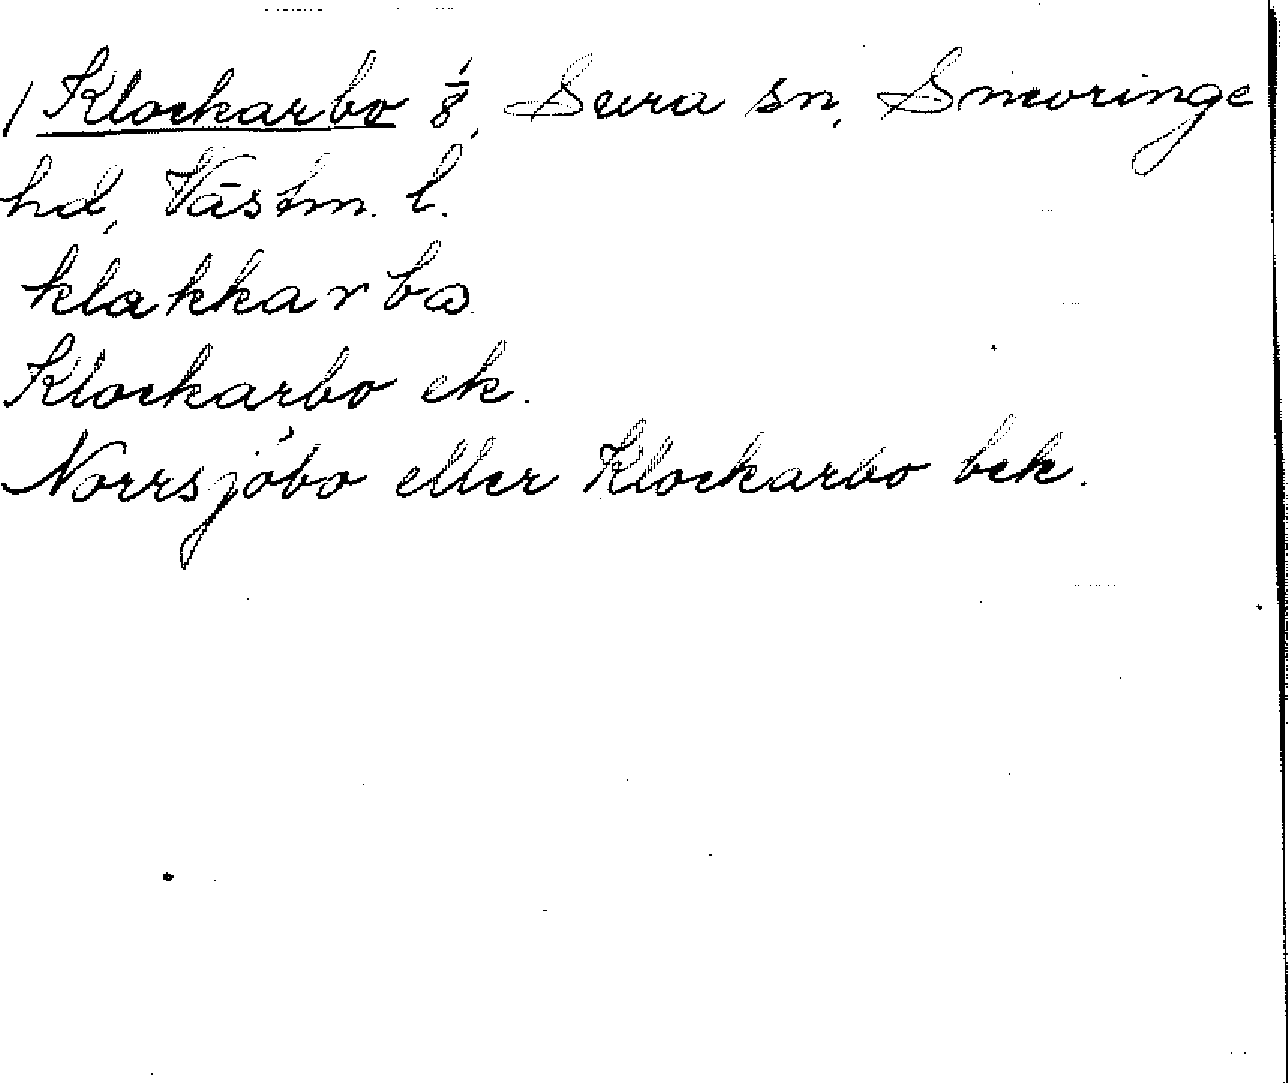 / Klockarbo 1/8, Sura sn, Snevringe
hd, Västm. l.
klakkarbω
Klockarbo ek.
Norrsjöbo eller Klockarbo bek.